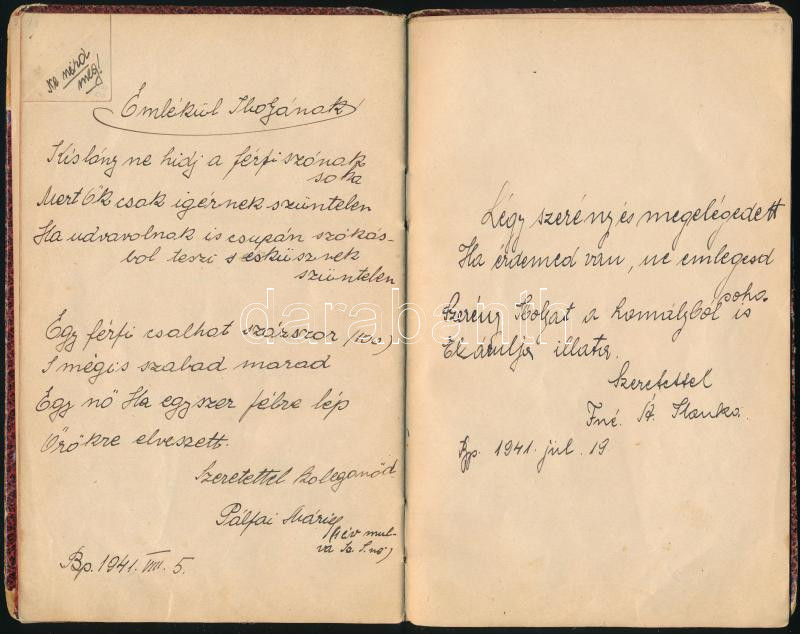 ne nézd
meg!
Emlékül Ibojának
Kislány ne hidj a férfi szónak
soha
Mert Ők csak igérnek szüntelen
Ha udvarolnak is csupán szokás-
ból teszi s esküsznek
szüntelen
Egy férfi csalhat százszor (100)
S mégis szabad marad
Egy nő Ha egyszer félre lép
Örökre elveszett.
Szeretettel koleganőd
Pálfai Mária
(1 év mul-
va
Bp. 1941. VIII. 5.
Légy szerény és megelégedett
Ha érdemed van, ne emlegesd
soha.
Szerény Ibolyat a homályból is
Elárulja illata.
Szeretettel
Fné.
Bp. 1941 júl. 19.
darabanth